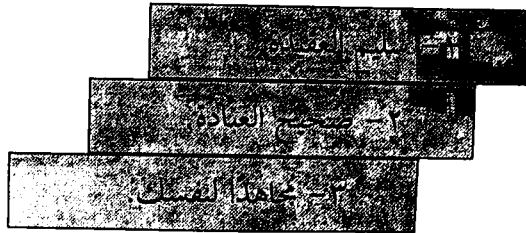 ١- سليم العقيدة.
٢- صحيح العبادة.
٣- مجاهدًا لنفسك.